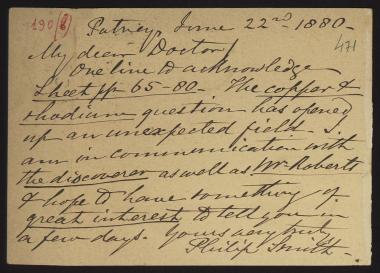 190(8)
Putney, June 22nd 1880-
471
My dear Doctor
One line to acknowledge
sheet pp 65-80. The copper &
rhodium question has opened
up an unexpected field. I
am in communication with
the discoverer as well as Mr Roberts
& hope to have something of
great interest to tell you in
a few days. Yours very truly,
Philip Smith-